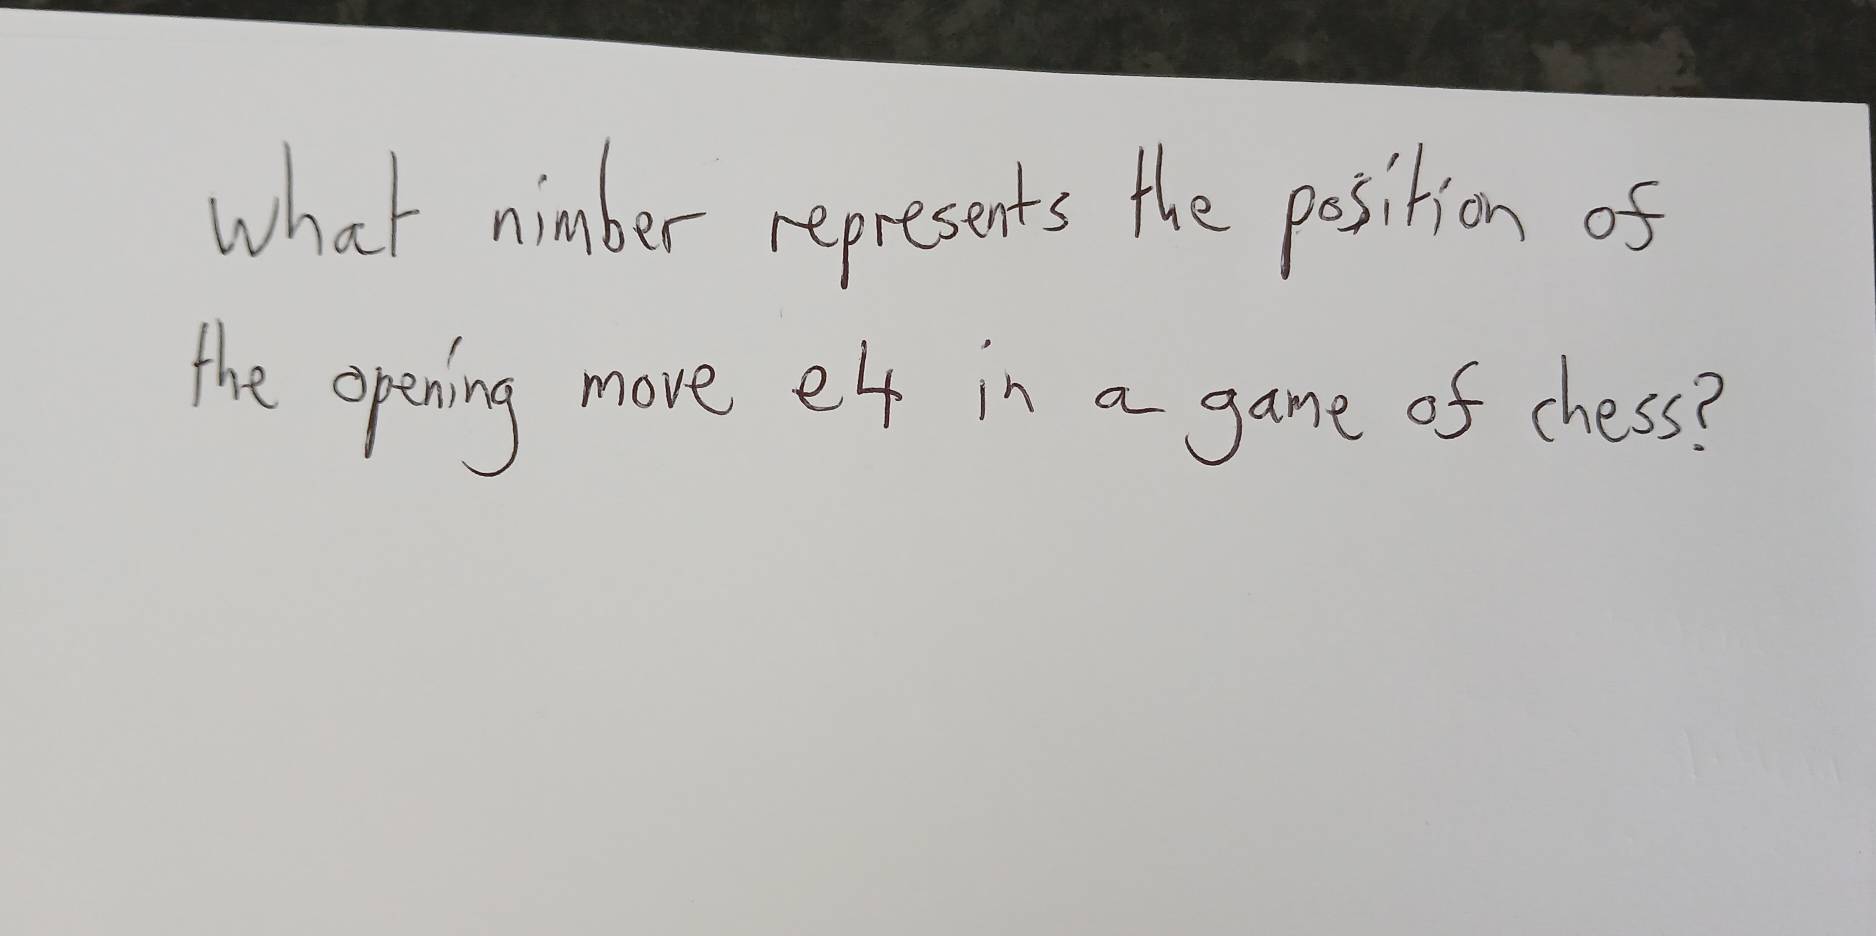 What nimber represents the position of
the opening move e4 in a game of chess?